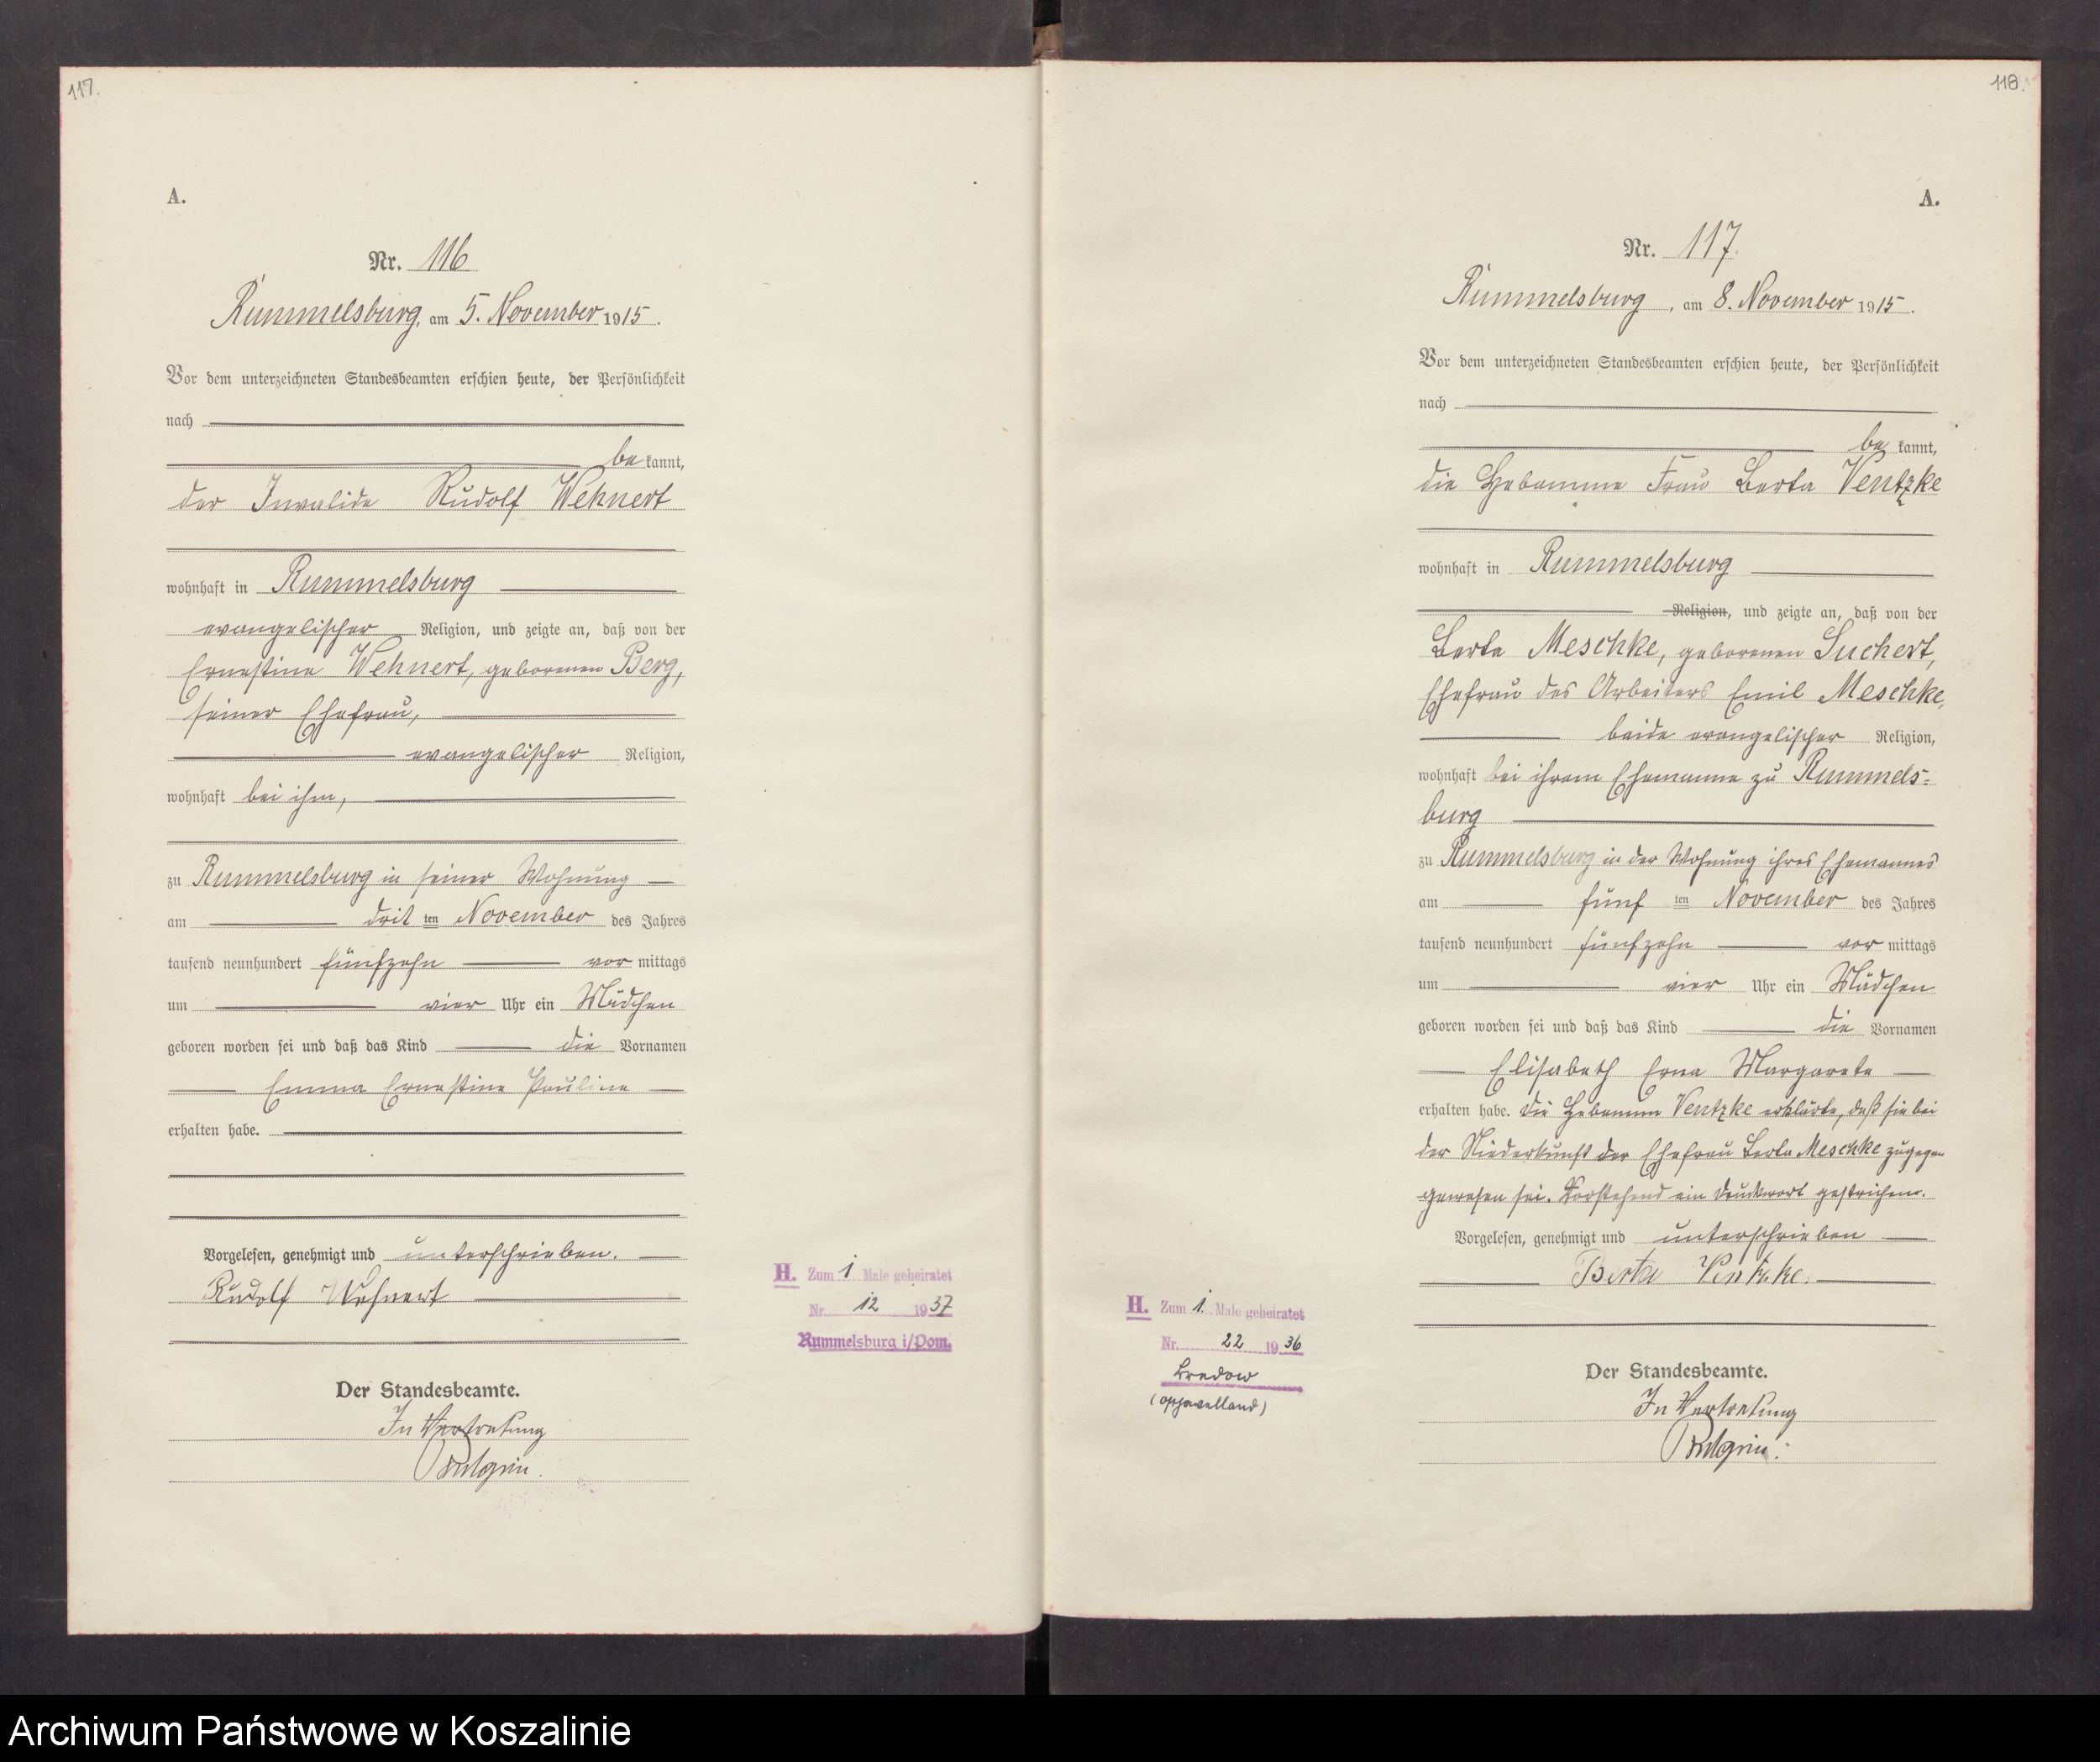 117.
A.
Nr. 116
Rummelsburg, am 5. November 1915.
Vor dem unterzeichneten Standesbeamten erschien heute, der Persönlichkeit
nach
be kannt,
der Invalide Rudolf Wehnert
wohnhaft in Rummelsburg
evangelischer Religion, und zeigte an, daß von der
Ernestine Wehnert, geborenen Berg,
seiner Ehefrau,
evangelischer Religion,
wohnhaft bei ihm,
zu Rummelsburg in seiner Wohnung
am drit ten November des Jahres
tausend neunhundert fünfzehn vor mittags
um vier Uhr ein Mädchen
geboren worden sei und daß das Kind die Vornamen
Emma Ernestine Pauline
erhalten habe.
Vorgelesen, genehmigt und unterschrieben.
Rudolf Wehnert
H. Zum 1 Male geheiratet
Nr. 12 1937
Rummelsburg i/Pom.
Der Standesbeamte.
In Vertretung
118.
A.
Nr. 117.
Rummelsburg, am 8. November 1915.
Vor dem unterzeichneten Standesbeamten erschien heute, der Persönlichkeit
nach
be kannt,
die Hebamme Frau Berta Ventzke
wohnhaft in Rummelsburg
Religion, und zeigte an, daß von der
Berta Meschke, geborenen Suchert,
Ehefrau des Arbeiters Emil Meschke,
beide evangelischer Religion,
wohnhaft bei ihrem Ehemanne zu Rummels-
burg
zu Rummelsburg in der Wohnung ihres Ehemannes
am fünf ten November des Jahres
tausend neunhundert fünfzehn vor mittags
um vier Uhr ein Mädchen
geboren worden sei und daß das Kind die Vornamen
Elisabeth Erna Margarete
erhalten habe. Die Hebamme Ventzke erklärte, daß sie bei
der Niederkunft der Ehefrau Berta Meschke zugegen
gewesen sei. Vorstehend ein Druckwort gestrichen.
Vorgelesen, genehmigt und unterschrieben
Berta Ventzke.
H. Zum 1. Male geheiratet
Nr. 22 1936
Bredow
(Osthavelland)
Der Standesbeamte.
In Vertretung
Archiwum Państwowe w Koszalinie